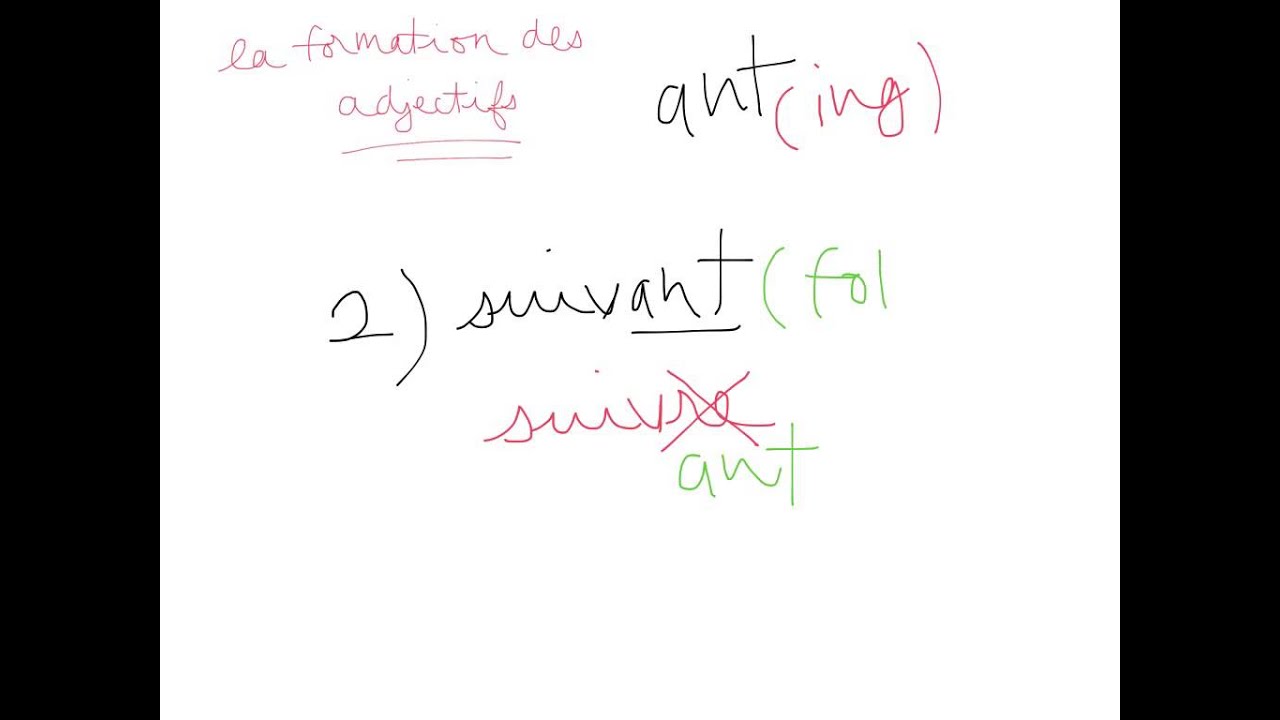 la formation des
adjectifs
ant (ing)
2) suivant (fol
suivre
ant